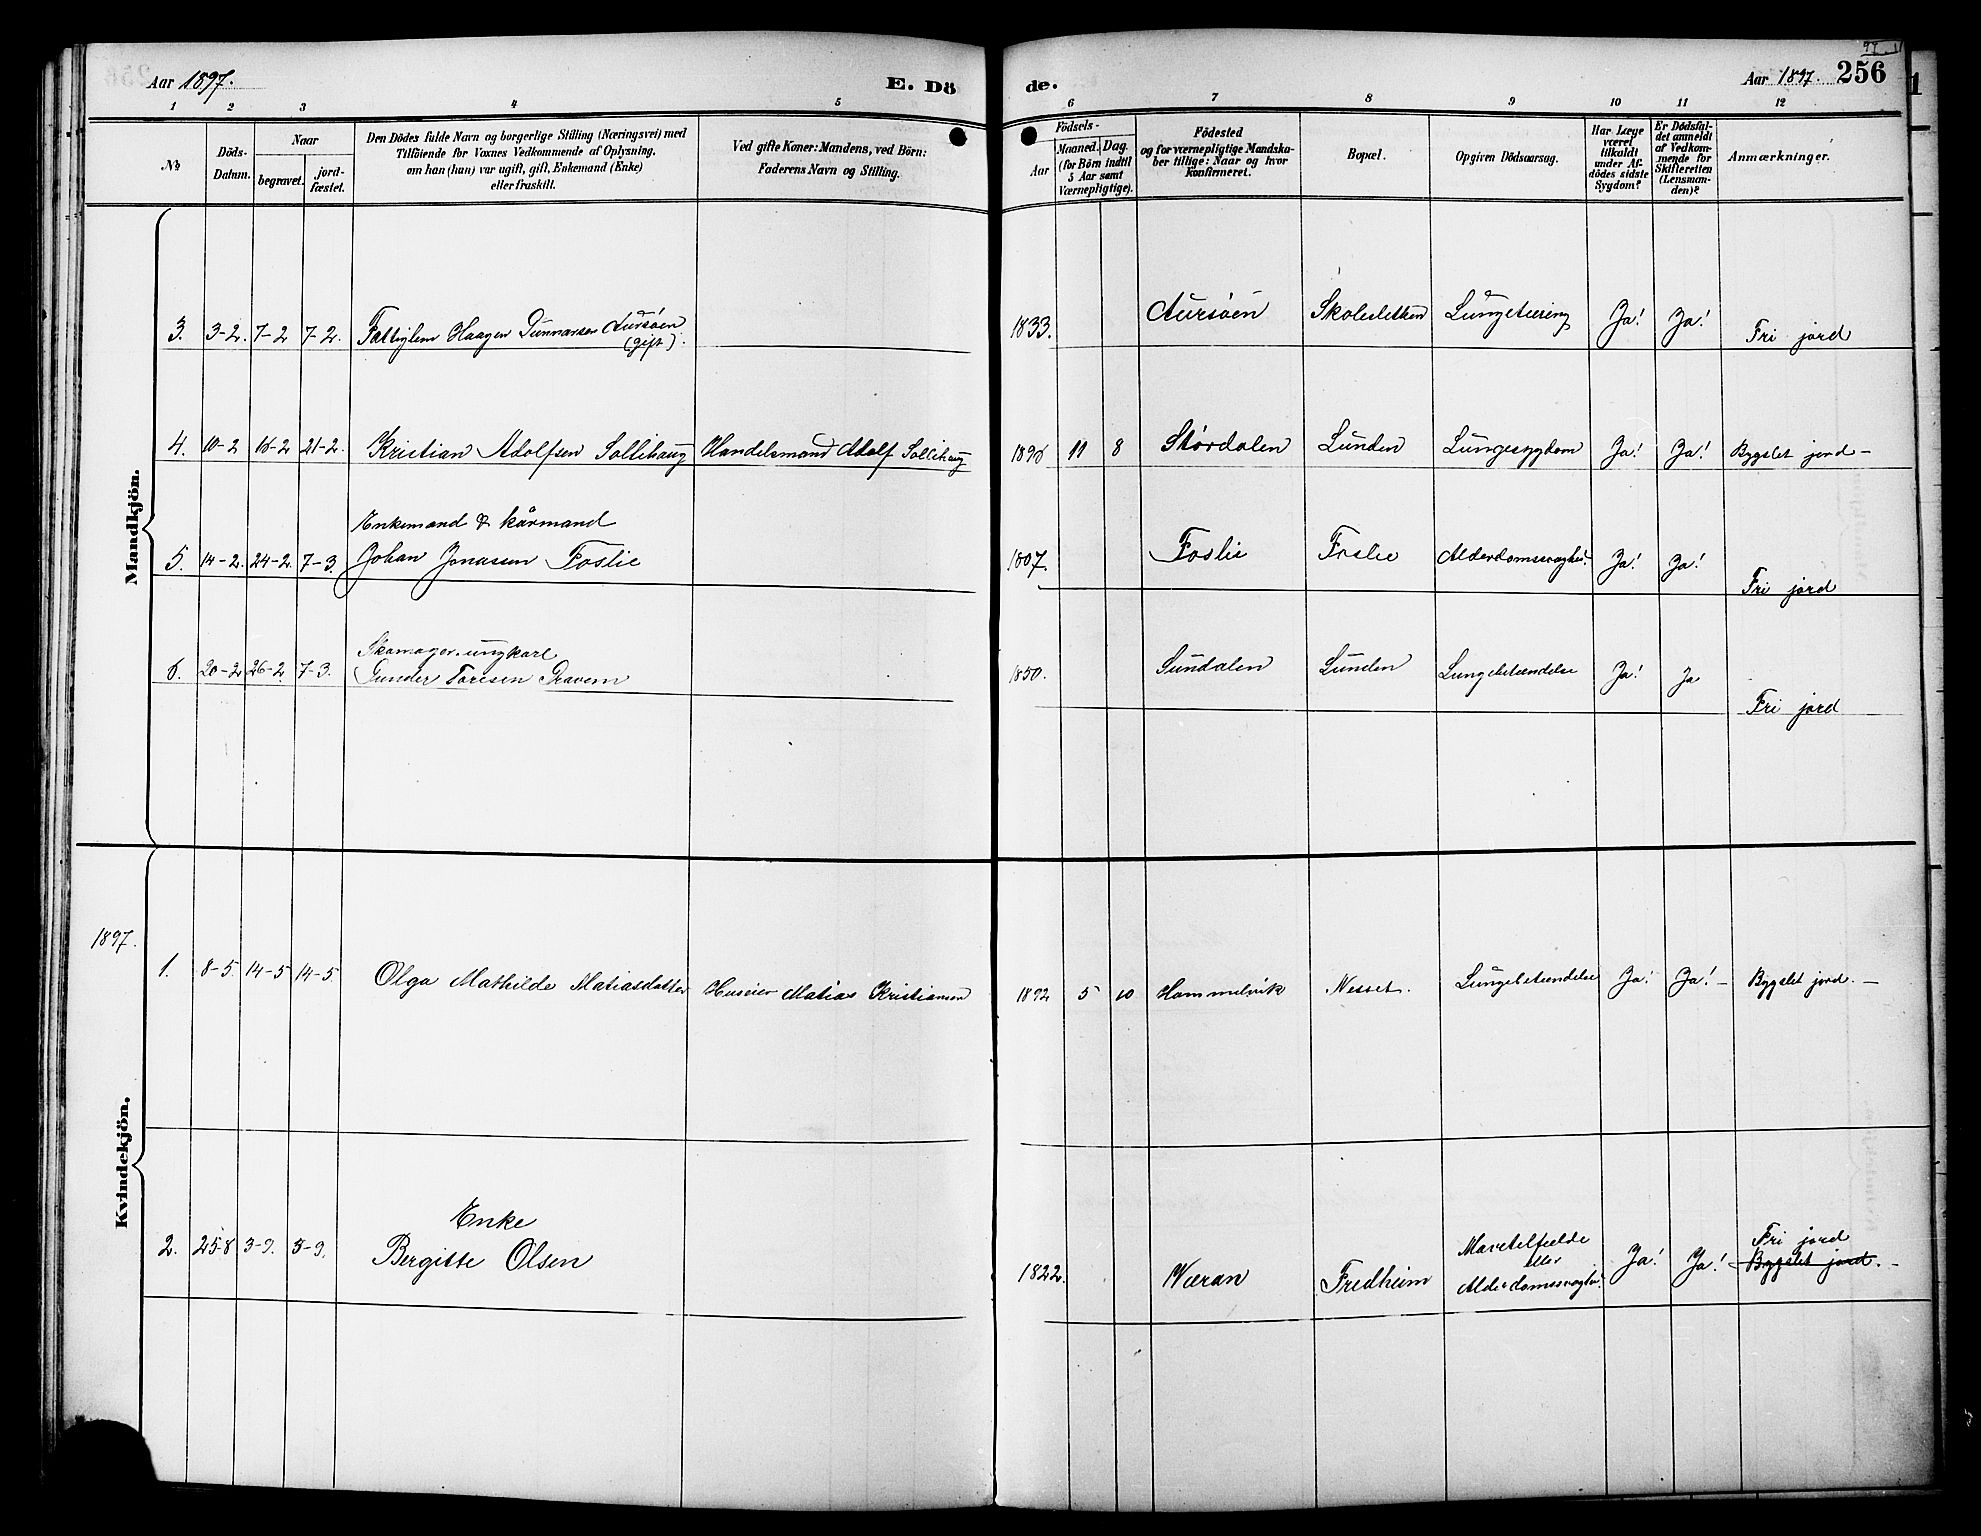 97. 11
Aar 1897. E. Dö de. Aar 1897. 256
1 2 3 4 5 6 7 8 9 10 11 12
№
Döds-
Datum.
Naar
begravet.
jord-
fæstet.
Den Dödes fulde Navn og borgerlige Stilling (Næringsvei) med
Tilföiende for Voxnes Vedkommende af Oplysning,
om han (hun) var ugift, gift, Enkemand (Enke)
eller fraskilt.
Ved gifte Koner: Mandens, ved Börn:
Faderens Navn og Stilling.
Födsels-
Aar
Maaned. Dag.
(for Börn indtil
5 Aar samt
Værnepligtige).
Födested
og for værnepligtige Mandska-
ber tillige: Naar og hvor
konfirmeret.
Bopæl.
Opgiven Dödsaarsag.
Har Læge
været
tilkaldt
under Af-
dödes sidste
Sygdom?
Er Dödsfal-
det anmeldt
af Vedkom-
mende for
Skifteretten
(Lensman-
den)?
Anmærkninger.
Mandkjön.
3. 3-2. 7-2 7-2. Fattiglem Haagen Gunnarsen Aursöen
(gift).
1833. Aursöen Skolesletten Lungetæring Ja! Ja! Fri jord
4. 10-2 16-2 21-2. Kristian Adolfsen Sollihaug Handelsmand Adolf Sollihaug 1896 11 8 Størdalen Lunden Lungesygdom Ja! Ja! Bygslet jord -
Enkemand & kårmand
5. 14-2. 24-2. 7-3. Johan Jonassen Foslie 1807. Foslie Foslie Alderdomssvaghed. Ja! Ja! Fri jord
Skomager. ungkarl
6. 20-2 26-2. 7-3. Gunder Toresen Gravem 1850. Sundalen Lunden Lungebetændelse Ja! Ja Fri jord
Kvindekjön.
1897.
1. 8-5. 14-5 14-5. Olga Mathilde Matiasdatter Huseier Matias Kristiansen 1892 5 10 Hommelvik Nesset. Lungebetændelse Ja! Ja! - Bygslet jord. -
Enke
2. 25-8 3-9. 5-9. Bergitte Olsen 1822. Væran Fredheim
eller
Alderdomssvaghed. Ja! Ja! Fri jord
Bygslet jord. -